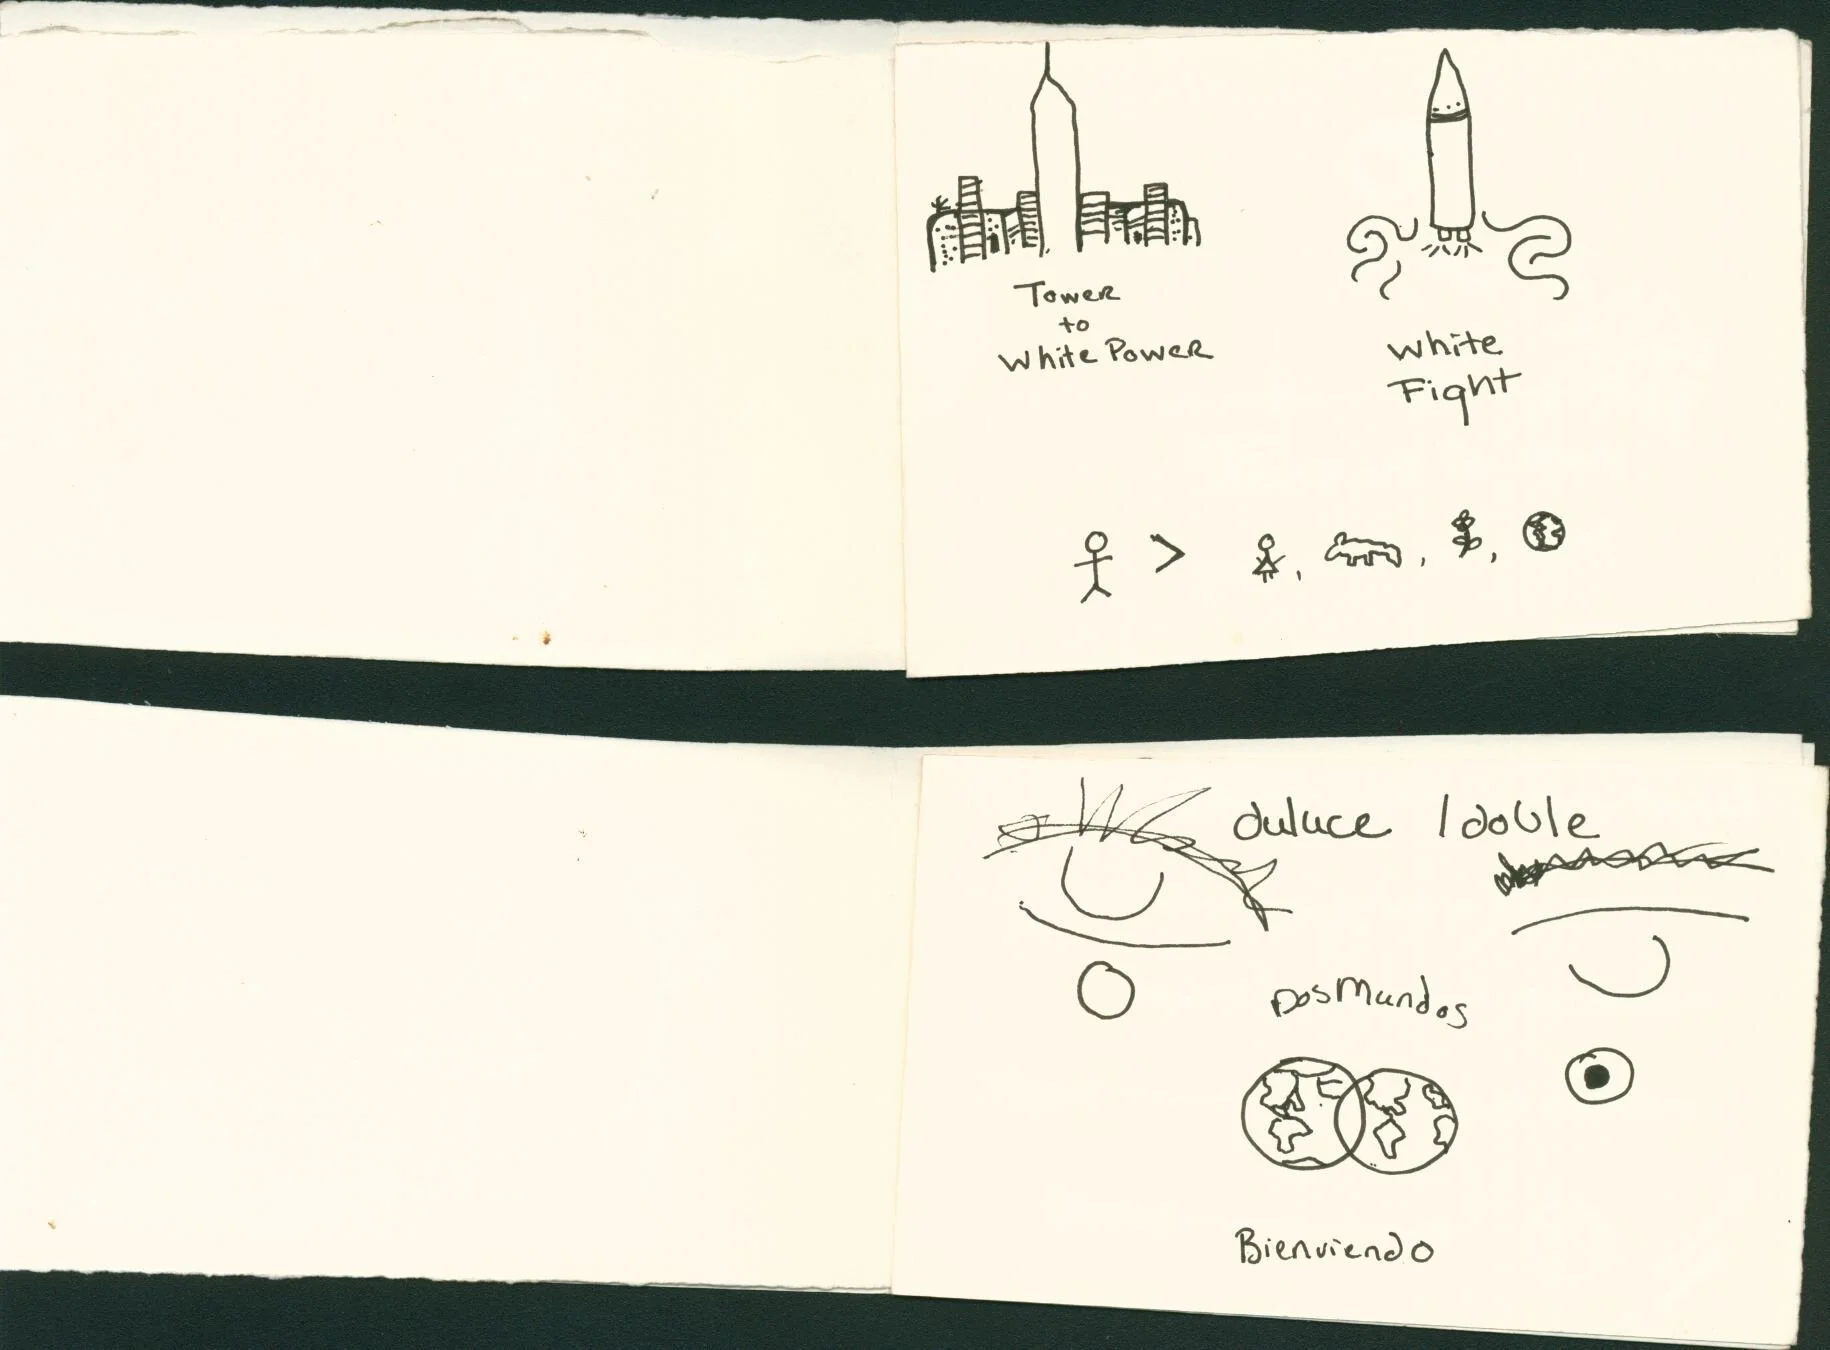 Tower
to
White Power
White
Fight
>
duluce / double
Dos Mundos
Bienviendo